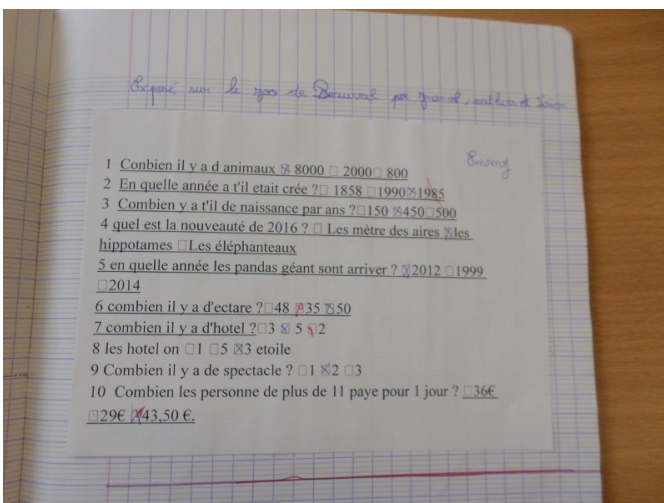 Exposé sur le zoo de Beauval par
Emmy
1 Conbien il y a d animaux ☒ 8000 ☐ 2000 ☐ 800
2 En quelle année a t'il etait crée ? ☐ 1858 ☐1990 ☒1985
3 Combien y a t'il de naissance par ans ? ☐150 ☒450 ☐500
4 quel est la nouveauté de 2016 ? ☐ Les mètre des aires ☒les
hippotames ☐Les éléphanteaux
5 en quelle année les pandas géant sont arriver ? ☒2012 ☐1999
☐2014
6 combien il y a d'ectare ? ☐48 ☒35 ☒50
7 combien il y a d'hotel ? ☐3 ☒ 5 ☒2
8 les hotel on ☐1 ☐5 ☒3 etoile
9 Combien il y a de spectacle ? ☐1 ☒2 ☐3
10 Combien les personne de plus de 11 paye pour 1 jour ? ☐36€
☐29€ ☒43,50 €.